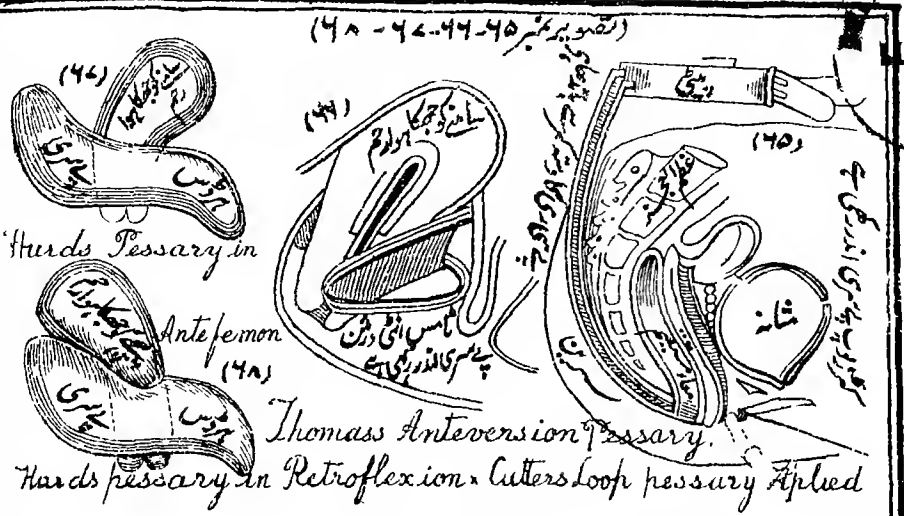 (تصویر نمبر ۶۵-۶۶-۶۷-۶۸)
(۶۷)
سامنے کو جھکا ہوا
رحم
پےسری
ہروس
Hurds Pessary in
Antefemon
(۶۸)
پیچھے کو جھکا ہوا رحم
پےسری
ہروس
(۶۶)
سامنے کو جھکا ہوا رحم
ٹامس انٹی ورژن
پےسری اندر رکھی ہے
(۶۵)
پیٹی
عظم العجز
مثانہ
سرین
Thomass Anteversion Pessary.
Hurds pessary in Retroflexion x Cutters Loop pessary Aplied